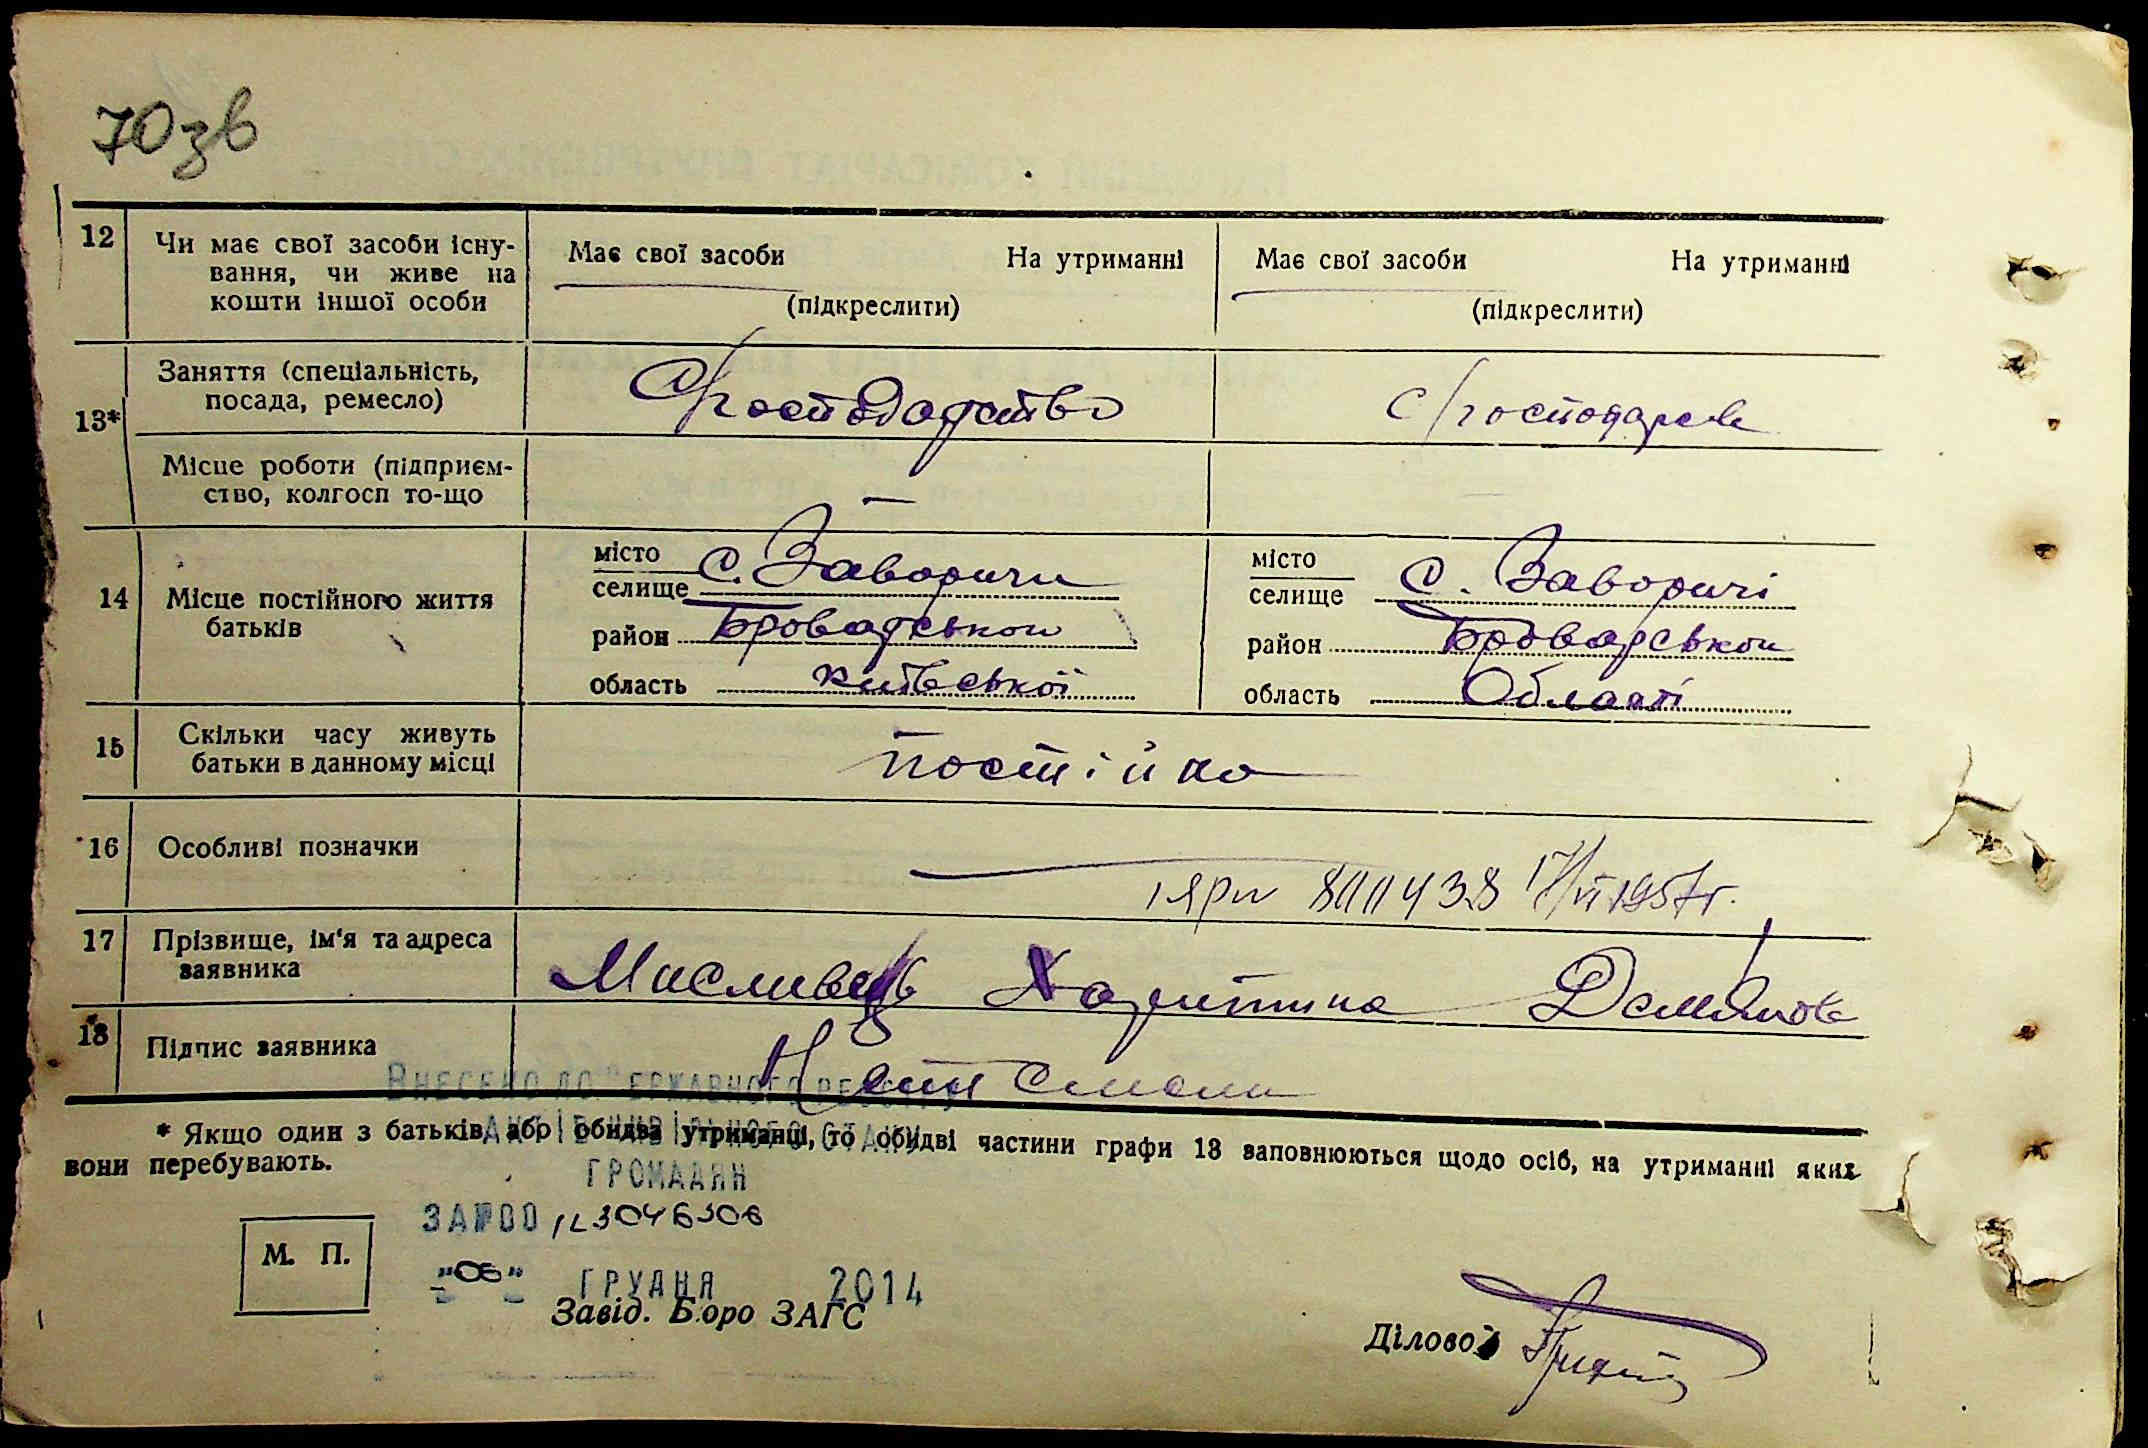 70 зв
12 Чи має свої засоби існу- Має свої засоби На утриманні Має свої засоби На утриманні
вання, чи живе на
кошти іншої особи (підкреслити) (підкреслити)
13* Заняття (спеціальність,
посада, ремесло) С/господарство С/господарств
Місце роботи (підприєм-
ство, колгосп то-що —
14 Місце постійного життя
батьків
місто
селище с. Заворичи
район Броварськои
область Київської
місто
селище с. Заворичі
район Броварськои
область Області
15 Скільки часу живуть
батьки в данному місці постійно
16 Особливі позначки —
800438 17/VI 1957г.
17 Прізвище, ім'я та адреса
заявника Мисливець Харитина Демянова
18* Підпис заявника
ВНЕСЕНО ДО ДЕРЖАВНОГО РЕЄСТРУ
АКТІВ ЦИВІЛЬНОГО СТАНУ
ГРОМАДЯН
* Якщо один з батьків, або обидва утриманці, то обидві частини графи 13 заповнюються щодо осіб, на утриманні яких
вони перебувають.
ЗА №00123046306
М. П.
"06" ГРУДНЯ 2014
Завід. Бюро ЗАГС
Діловод